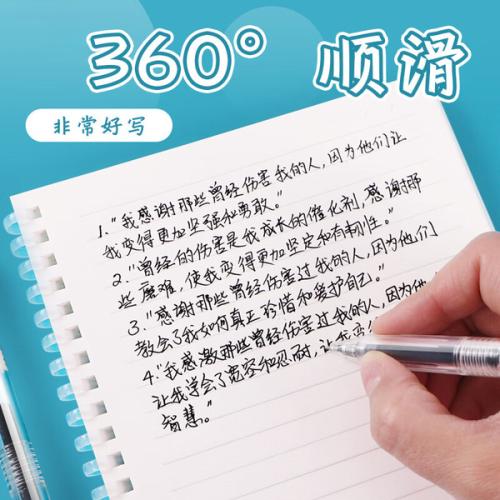 360° 顺滑
非常好写
1."我感谢那些曾经伤害我的人,因为他们让
我变得更加坚强和勇敢。"
2."曾经的伤害是我成长的催化剂,感谢那
些磨难,使我变得更加坚定和有韧性。"
3."感谢那些曾经伤害过我的人,因为他们
教会了我如何真正珍惜和爱护自己。"
4."我感激那些曾经伤害过我的人,因为他
让我学会了宽容和忍耐,让我变
智慧。"